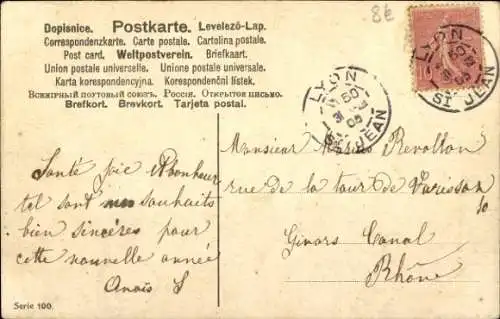 8€
Dopisnice. Postkarte. Levelező-Lap.
Correspondenzkarte. Carte postale. Cartolina postale.
Post card. Weltpostverein. Briefkaart.
Union postale universelle. Unione postale universale.
Karta korespondencyjna. Korespondenční lístek.
Всемірный почтовый союзъ. Россія. Открытое письмо.
Brefkort. Brevkort. Tarjeta postal.
LYON
ST JEAN
LYON
ST JEAN
10
Monsieur Revollon
rue de la tour de Varisson
10
Givors Canal
Rhône
Santé joie et bonheur
tel sont souhaits
bien sincères pour
cette nouvelle année
Anaïs S
Serie 100.